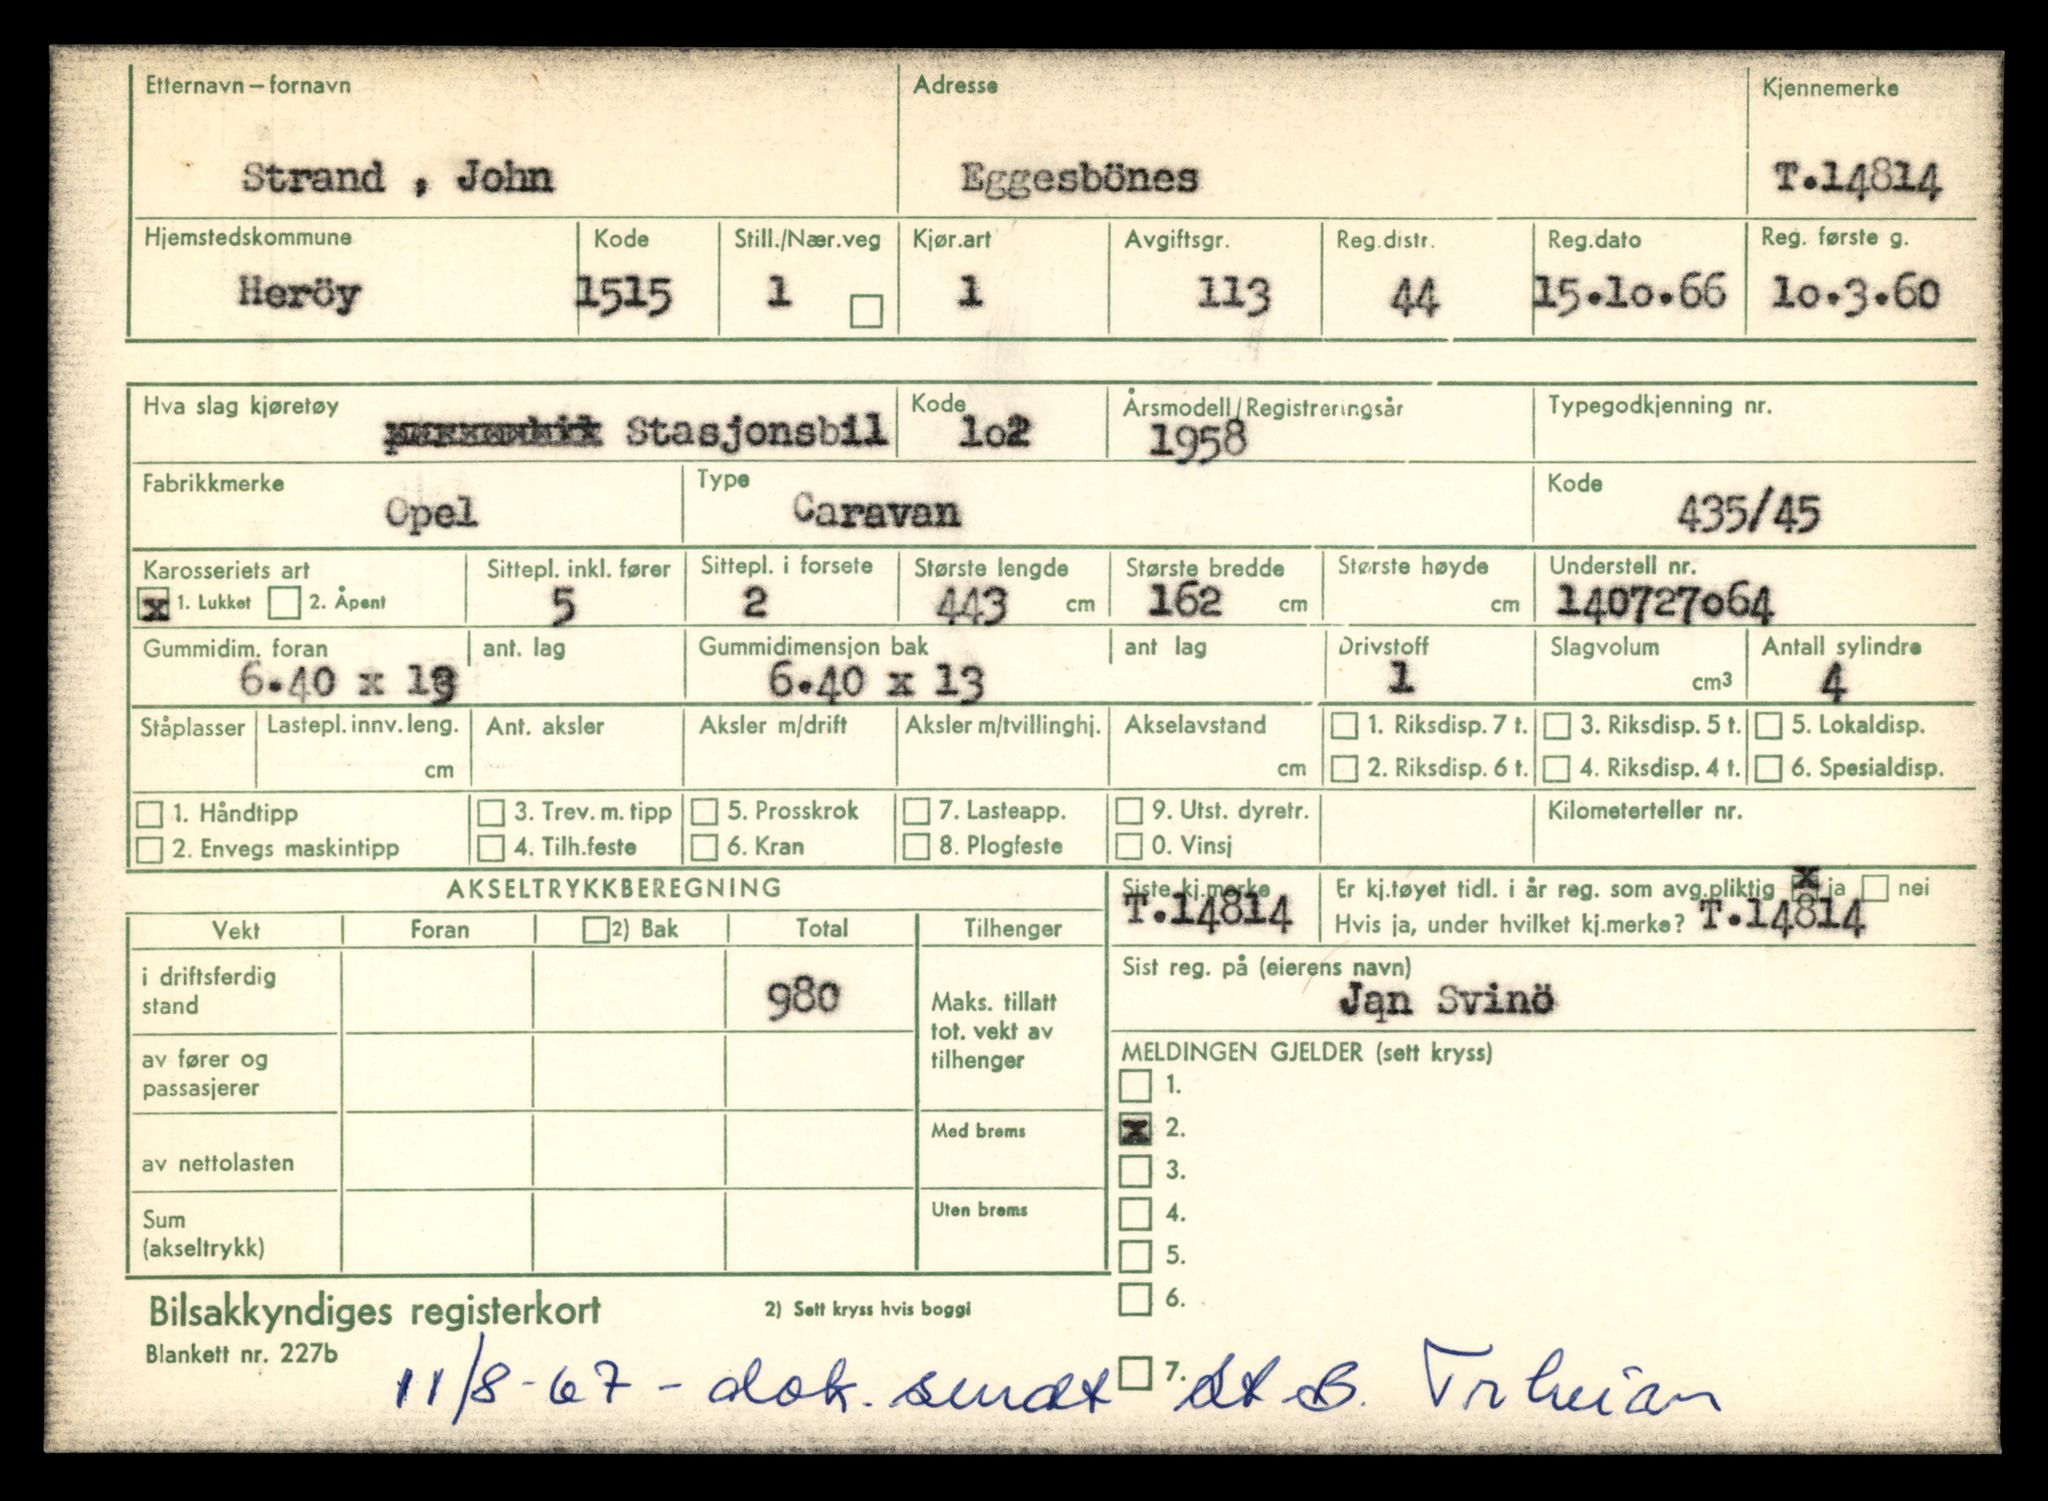 Etternavn – fornavn Adresse Kjennemerke
Strand , John Eggesbönes T.14814
Hjemstedskommune Kode Still./Nær.veg Kjør.art Avgiftsgr. Reg.distr. Reg.dato Reg. første g.
Heröy 1515 1 1 113 44 15.1o.66 1o.3.60
Hva slag kjøretøy Kode Årsmodell/Registreringsår Typegodkjenning nr.
Stasjonsbil 1o2 1958
Fabrikkmerke Type Kode
Opel Caravan 435/45
Karosseriets art Sittepl. inkl. fører Sittepl. i forsete Største lengde Største bredde Største høyde Understell nr.
x 1. Lukket 2. Åpent 5 2 443 cm 162 cm cm 140727o64
Gummidim. foran ant. lag Gummidimensjon bak ant lag Drivstoff Slagvolum Antall sylindre
6.40 x 13 6.40 x 13 1 cm3 4
Ståplasser Lastepl. innv. leng. Ant. aksler Aksler m/drift Aksler m/tvillinghj. Akselavstand 1. Riksdisp. 7 t. 3. Riksdisp. 5 t. 5. Lokaldisp.
cm cm 2. Riksdisp. 6 t. 4. Riksdisp. 4 t. 6. Spesialdisp.
1. Håndtipp 3. Trev. m. tipp 5. Prosskrok 7. Lasteapp. 9. Utst. dyretr. Kilometerteller nr.
2. Envegs maskintipp 4. Tilh.feste 6. Kran 8. Plogfeste 0. Vinsj
AKSELTRYKKBEREGNING Siste kj.merke Er kj.tøyet tidl. i år reg. som avg.pliktig x ja nei
T.14814 Hvis ja, under hvilket kj.merke? T.14814
Vekt Foran 2) Bak Total Tilhenger
Sist reg. på (eierens navn)
Jan Svinö
i driftsferdig
stand 980 Maks. tillatt
tot. vekt av
tilhenger
av fører og
passasjerer
MELDINGEN GJELDER (sett kryss)
1.
x 2.
Med brems
av nettolasten 3.
4.
Uten brems
Sum
(akseltrykk) 5.
6.
Bilsakkyndiges registerkort 2) Sett kryss hvis boggi
Blankett nr. 227b
7.
11/8-67 - dok. sendt St B.